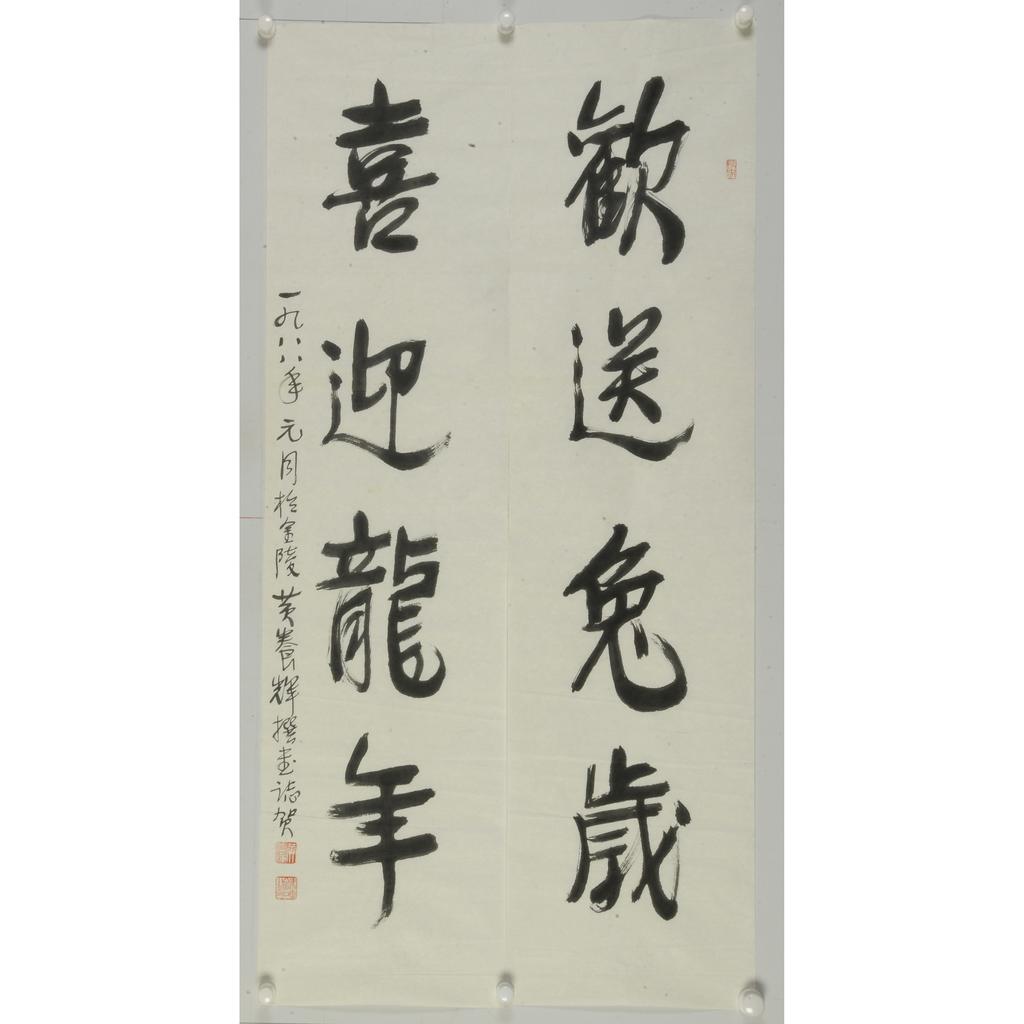 歡送兔歲
喜迎龍年
一九八八年元月於金陵黄養輝撰書誌贺